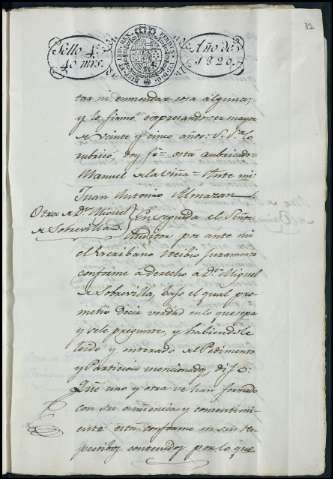 Sello 4º
40 mrs.
Año de
1820.
12
tar ni enmendar cosa alguna;
y lo firmó expresando ser mayor
de veinte y cinco años: S. Sª lo
rubricó, doy fe = está rubricado
Manuel de la Viña = Ante mi
Juan Antonio Almazan =
Otra de Dn Miguel
de Sobrevilla
En seguida el Señor
Auditor por ante mi
el Escribano recibio juramento
conforme a derecho a Dn Miguel
de Sobrevilla, bajo el qual pro-
metio decir verdad en lo que sepa
y se le pregunte, y habiendole
leido y enterado del Pedimento
y Particion mencionados dijo:
Que uno y otra se han formado
con su anuencia y consentimi-
ento está conforme en sus res-
pectivos contenidos por lo que